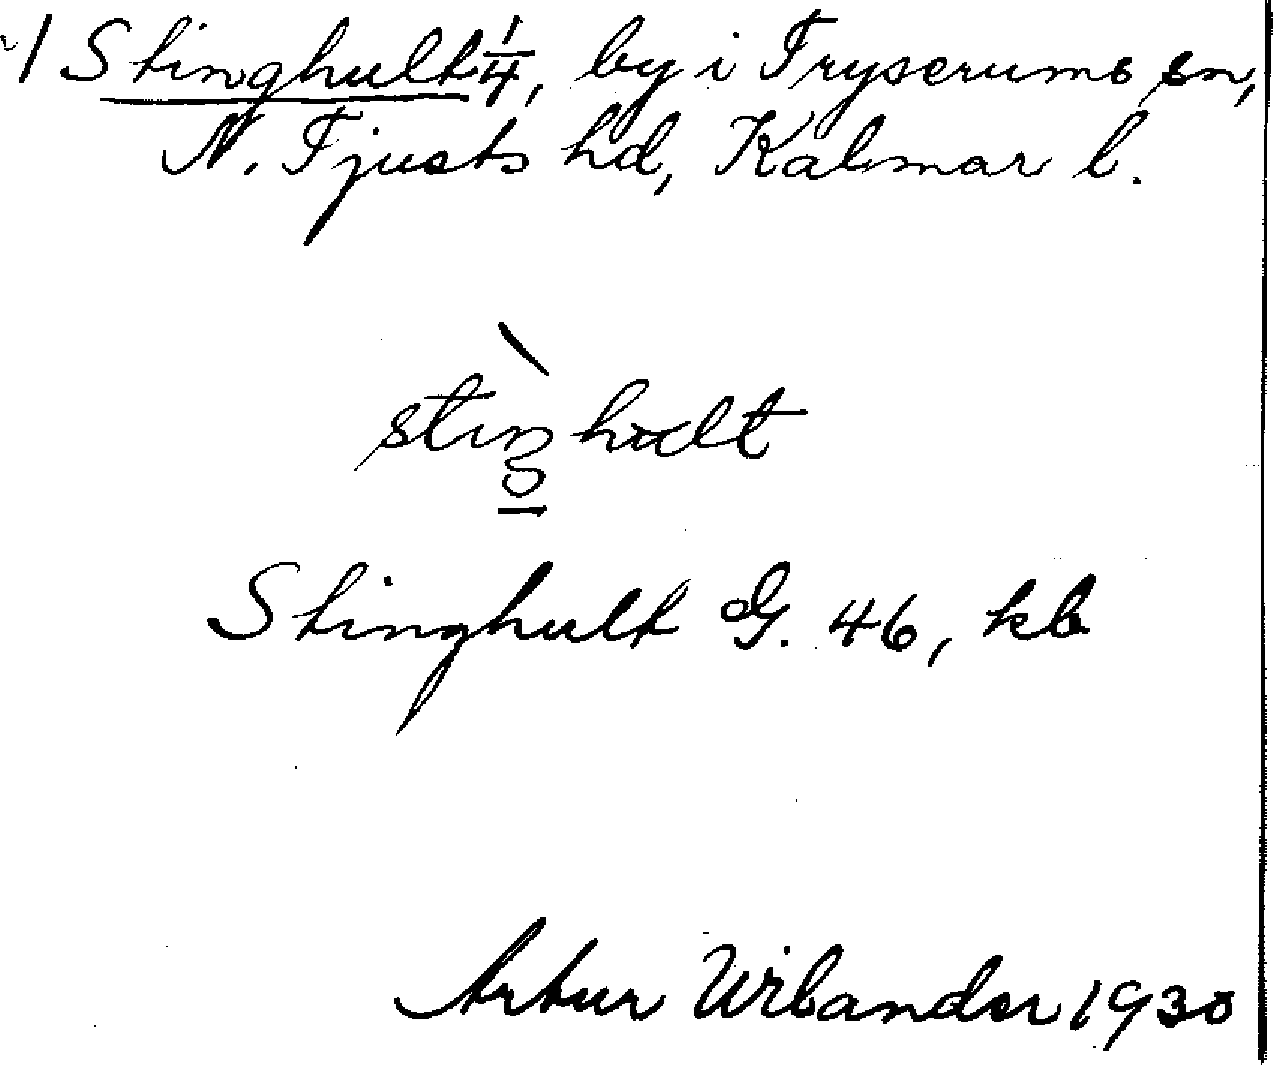 / Stinghult 1/4, by i Tryserums sn,
N. Tjusts hd, Kalmar l.
stìŋhult
Stinghult G. 46, kb
Artur Wilander 1930